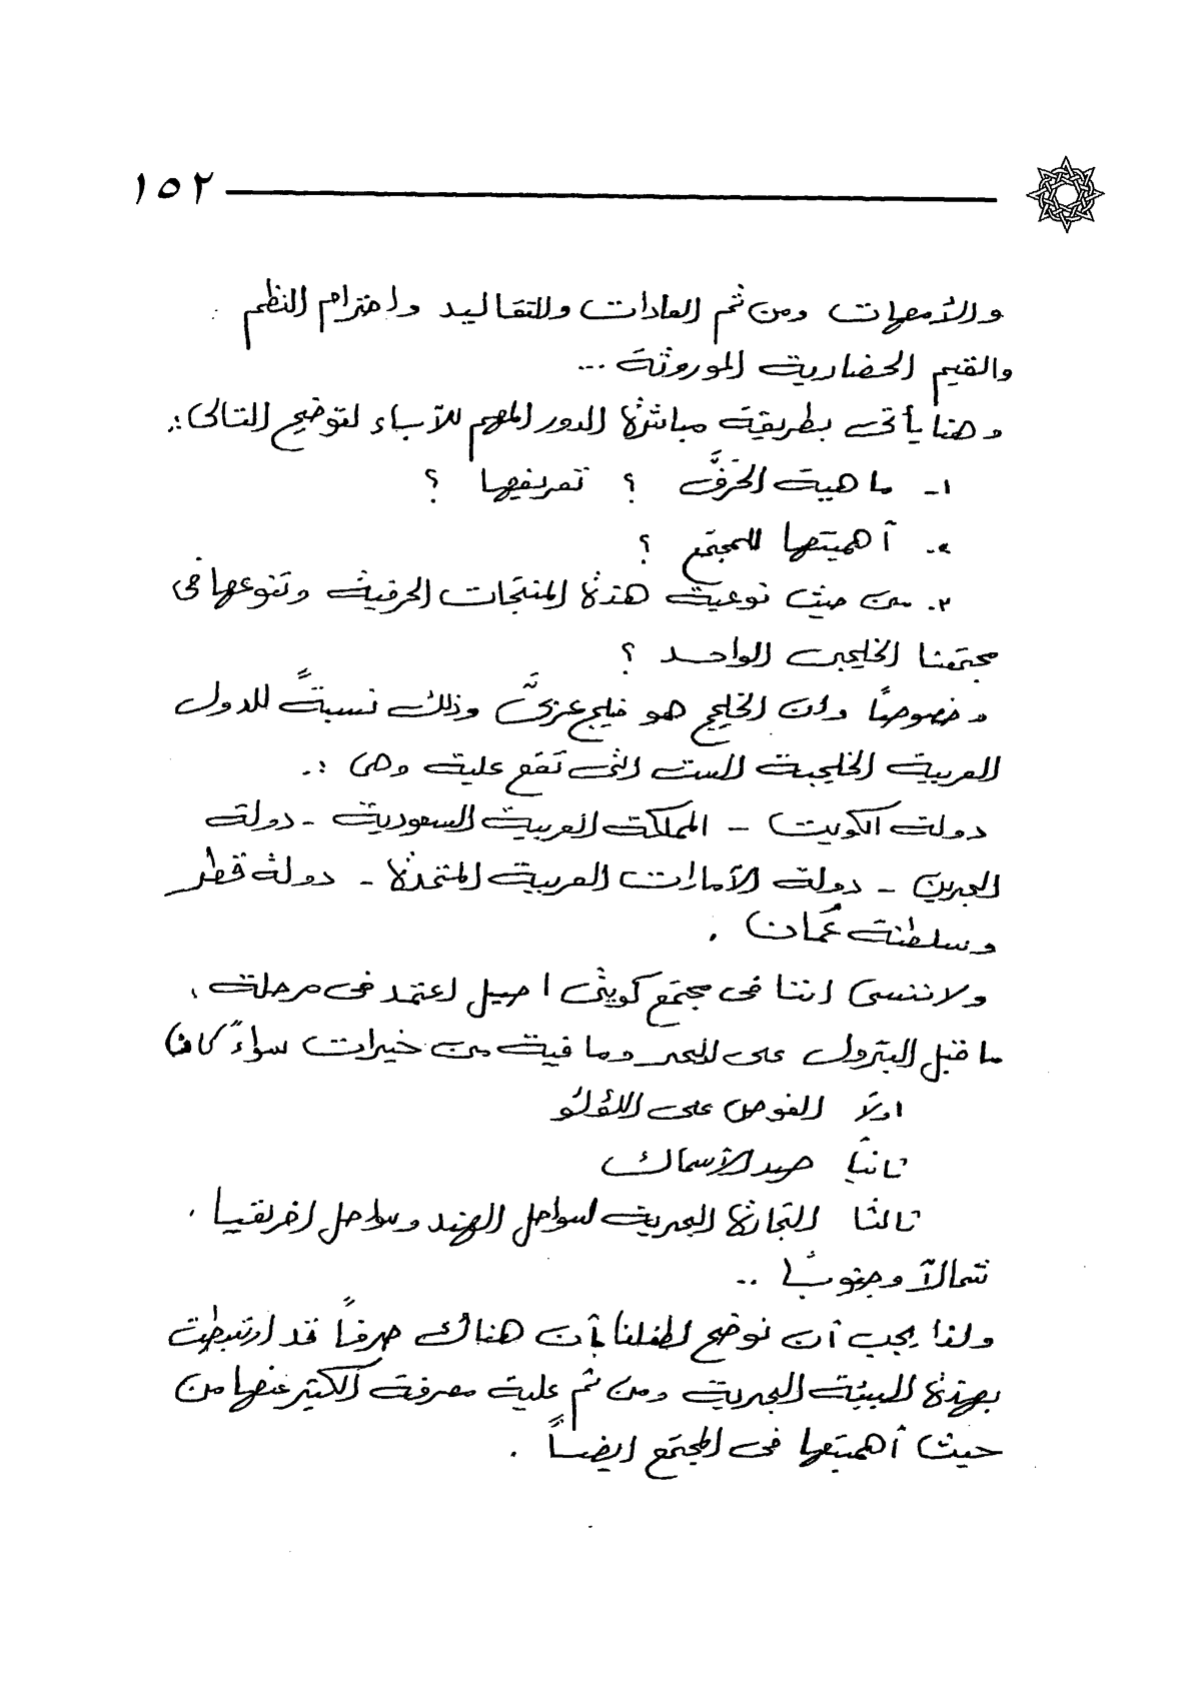 ١٥٢
والأمهات ومن ثم العادات والتقاليد واحترام النظم
والقيم الحضارية الموروثة ...
وهنا يأتى بطريقة مباشرة الدور المهم للآباء لتوضيح التالى :.
١- ماهية الحَرفَّ ؟ تعريفها ؟
٢. أهميتها للمجتمع ؟
٣. من حيث نوعية هذة المنتجات الحرفية وتنوعها فى
مجتمعنا الخليجى الواحد ؟
وخصوصاً وان الخليج هو خليج عربىَّ وذلك نسبةً للدول
العربية الخليجية الست التى تقع علية وهى :.
دولة الكويت - المملكة العربية السعودية - دولة
البحرين - دولة الآمارات العربية المتحدة - دولة قطر
وسلطنة عُمان .
ولاننسى اننا فى مجتمع كويتى اصيل اعتمد فى مرحلة
ما قبل البترول على البحر وما فية من خيرات سواءً كان
اولاً الغوص على اللؤلؤ
ثانياً صيد الآسماك
ثالثا التجارة البحرية لسواحل الهند وسواحل افريقيا .
شمالآ وجنوباً ..
ولذا يجب أن نوضح لطفلنا بأن هناك حرفاً قد ارتبطت
بهذة البيئة البحرية ومن ثم علية معرفة الكثير عنها من
حيث أهميتها فى المجتمع ايضاً .